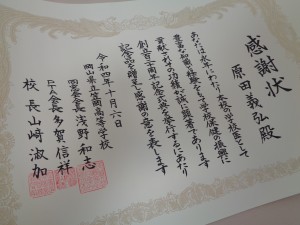 感謝状
原田義弘殿
あなたは永年にわたり本校の学校医として
豊富な知識と経験をもって学校保健の振興に
貢献されその功績は誠に顕著であります
創立百二十周年記念式典を挙行するにあたり
記念品を贈呈し感謝の意を表します
令和四年十月六日
岡山県立笠岡高等学校
同窓会長浅野和志
PTA会長多賀信祥
校長山﨑淑加